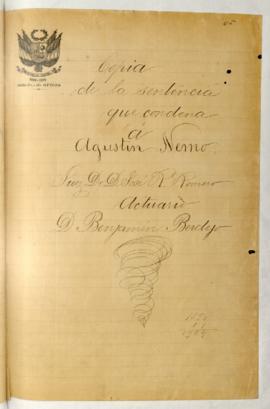 Copia
de la sentencia
que condena
á
Agustin Nemo.
Juez Dr. D. José Ro. Romero
Actuario
D. Benjamin Berdejo